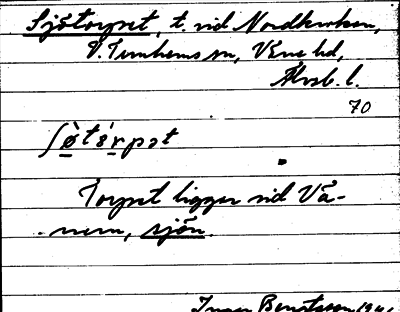 Sjötorpet, t. vid Nordkroken,
V. Tunhems sn, Väne hd,
Älvsb. l.
70
ʃø̀tårpət
Torpet ligger vid Vä-
nern, sjön.
Inger Bengtsson